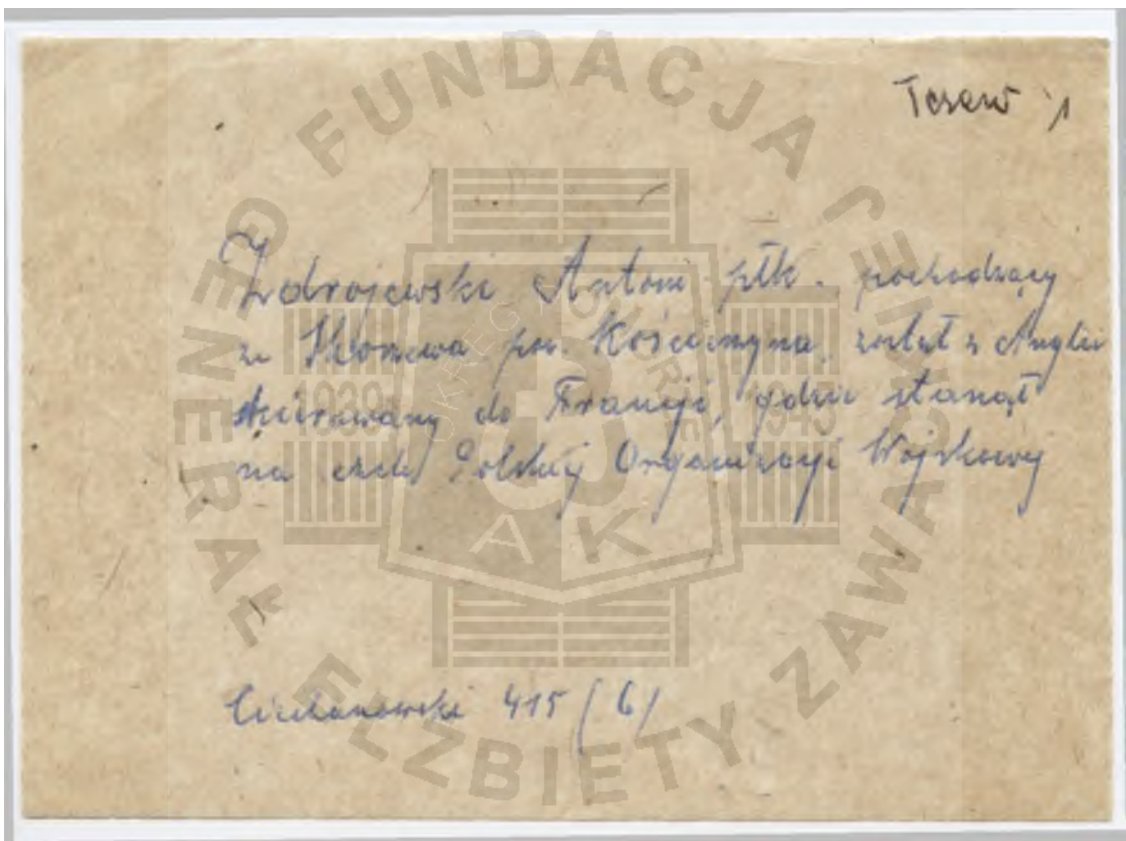 Tczew
Zdrojewski Antoni płk. pochodzący
ze pow. Kościerzyna, został z Anglii
skierowany do Francji, gdzie stanął
na czele Polskiej Organizacji Wojskowej
Ciechanowski 415 (6)
FUNDACJA GENERAŁ ELŻBIETY ZAWACKIEJ
OKRĘG POMORZE
1939 1945
AK